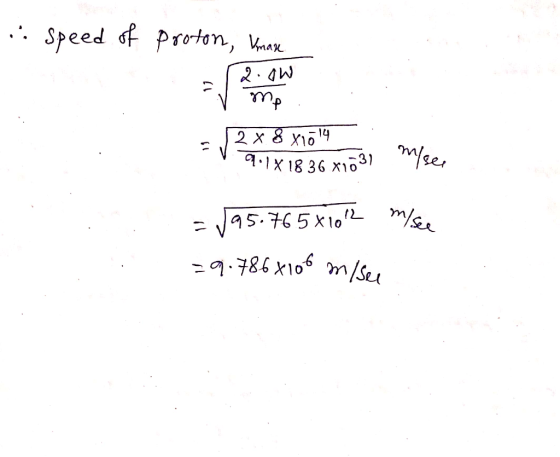 ∴ Speed of proton, Vmax
= √(2·ΔW / mp)
= √(2 × 8 × 10^-14 / 9.1 × 1836 × 10^-31) m/sec
= √(95.765 × 10^12) m/sec
= 9.786 × 10^6 m/sec